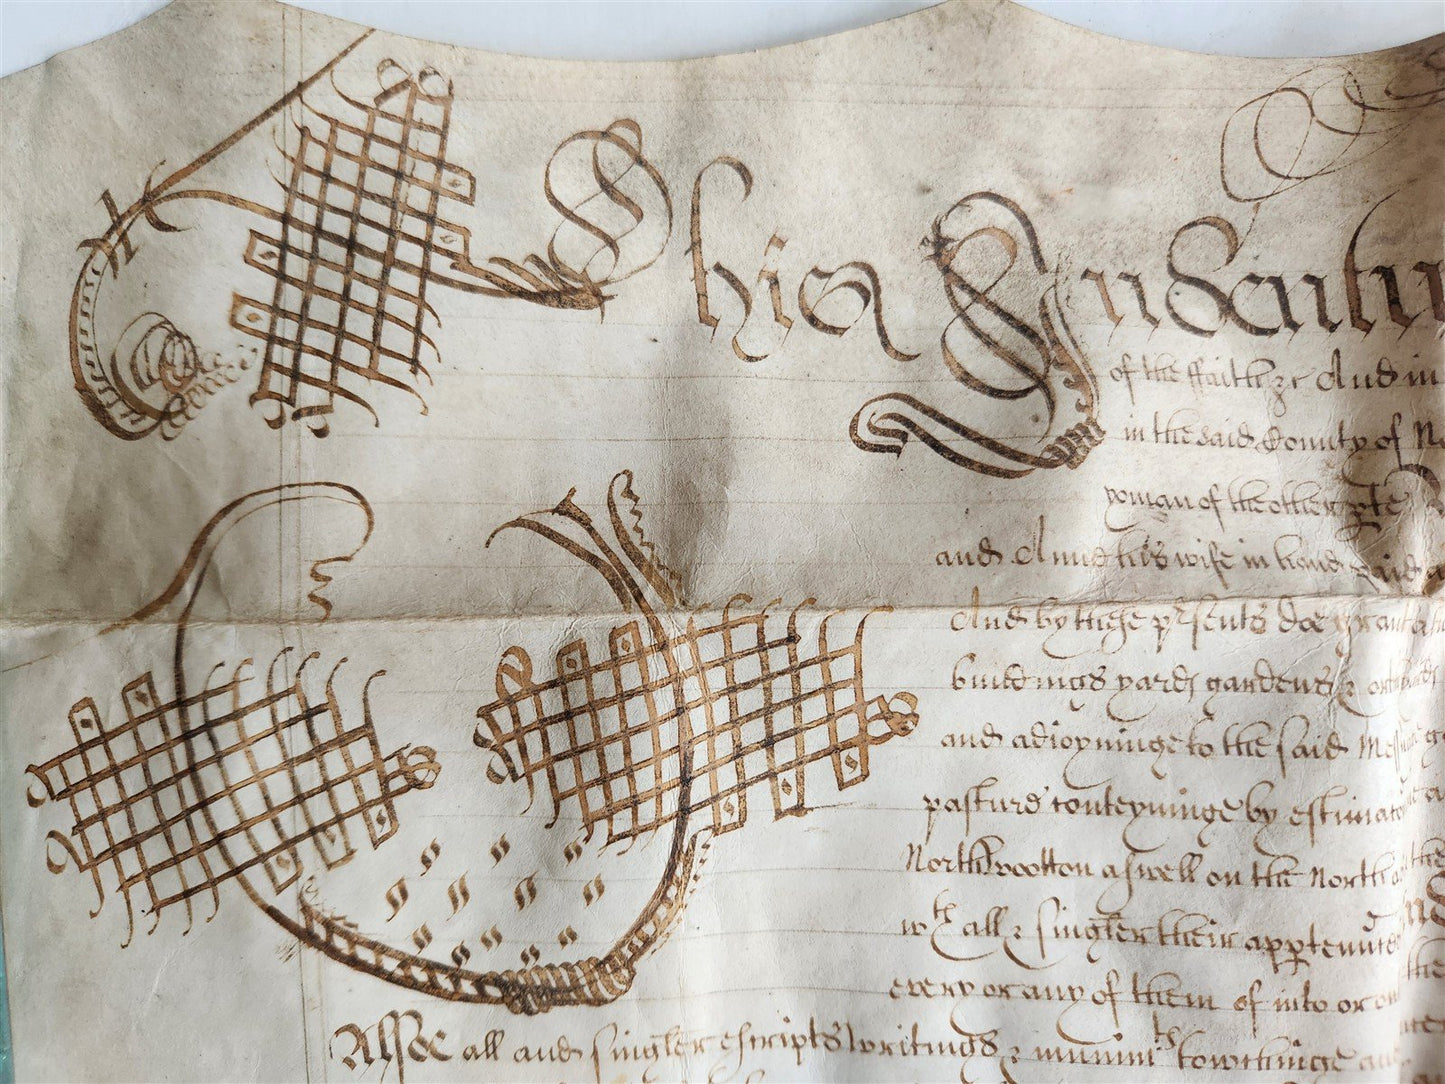 This Indentu
of the ffaith &c And in
in the said County of No
yoman of the other pte
and Anne his wife in hand said
And by these pr̃sents doe graunt
buildings yards gardens & orchards
and adioyninge to the said Mess
pasture conteyninge by estimac
Northwootton aswell on the North
wth all & singler their apptenñces
every or any of them of into or
Alsoe all and singler escripts writings & munimts towchinge